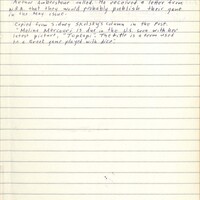 Arthur Ambrosius called. He received a letter from
N.Y.A. that they would probably publish their game
in the near
Copied from Sidney Skolsky's column in the Post.
"Melina Mercouri is due in the U.S. soon with her
latest picture, "Topkapi". The title is a term used
in a Greek game played with dice".